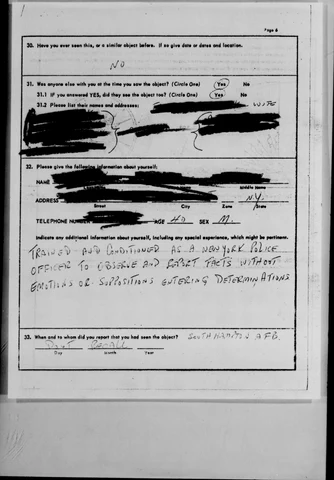 Page 6
30. Have you ever seen this, or a similar object before. If so give date or dates and location.
NO
31. Was anyone else with you at the time you saw the object? (Circle One) Yes No
31.1 If you answered YES, did they see the object too? (Circle One) Yes No
31.2 Please list their names and addresses:
WIFE
32. Please give the following information about yourself:
NAME
Middle Name
ADDRESS N.Y.
Street City Zone State
TELEPHONE NUMBER AGE 40 SEX M.
Indicate any additional information about yourself, including any special experience, which might be pertinent.
TRAINED AND CONDITIONED AS A NEW YORK POLICE
OFFICER TO OBSERVE AND REPORT FACTS WITHOUT
EMOTIONS OR SUPPOSITIONS ENTERING DETERMINATIONS
33. When and to whom did you report that you had seen the object? SOUTH HAMPTON A.F.B.
DON'T RECALL
Day Month Year